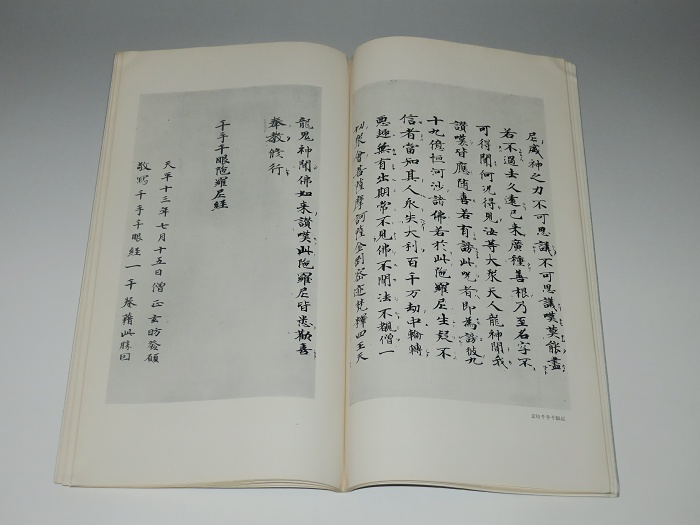 尼威神之力不可思議不可思議嘆莫能盡
若不過去久遠已来廣種善根乃至名字不
可得聞何況得見汝等大衆天人龍神聞我
讃嘆皆應随喜若有謗此呪者即為謗彼九
十九億恒河沙諸佛若於此陁羅尼生疑不
信者當知其人永失大利百千万劫中輪轉
悪趣無有出期常不見佛不聞法不覩僧一
衆會菩薩摩訶薩金剛密迹梵釋四王天
龍鬼神聞佛如来讃嘆此陁羅尼皆悉歡喜
奉教修行
千手千眼陁羅尼経
天平十三年七月十五日僧正玄昉發願
敬寫千手千眼経一千巻藉此勝因